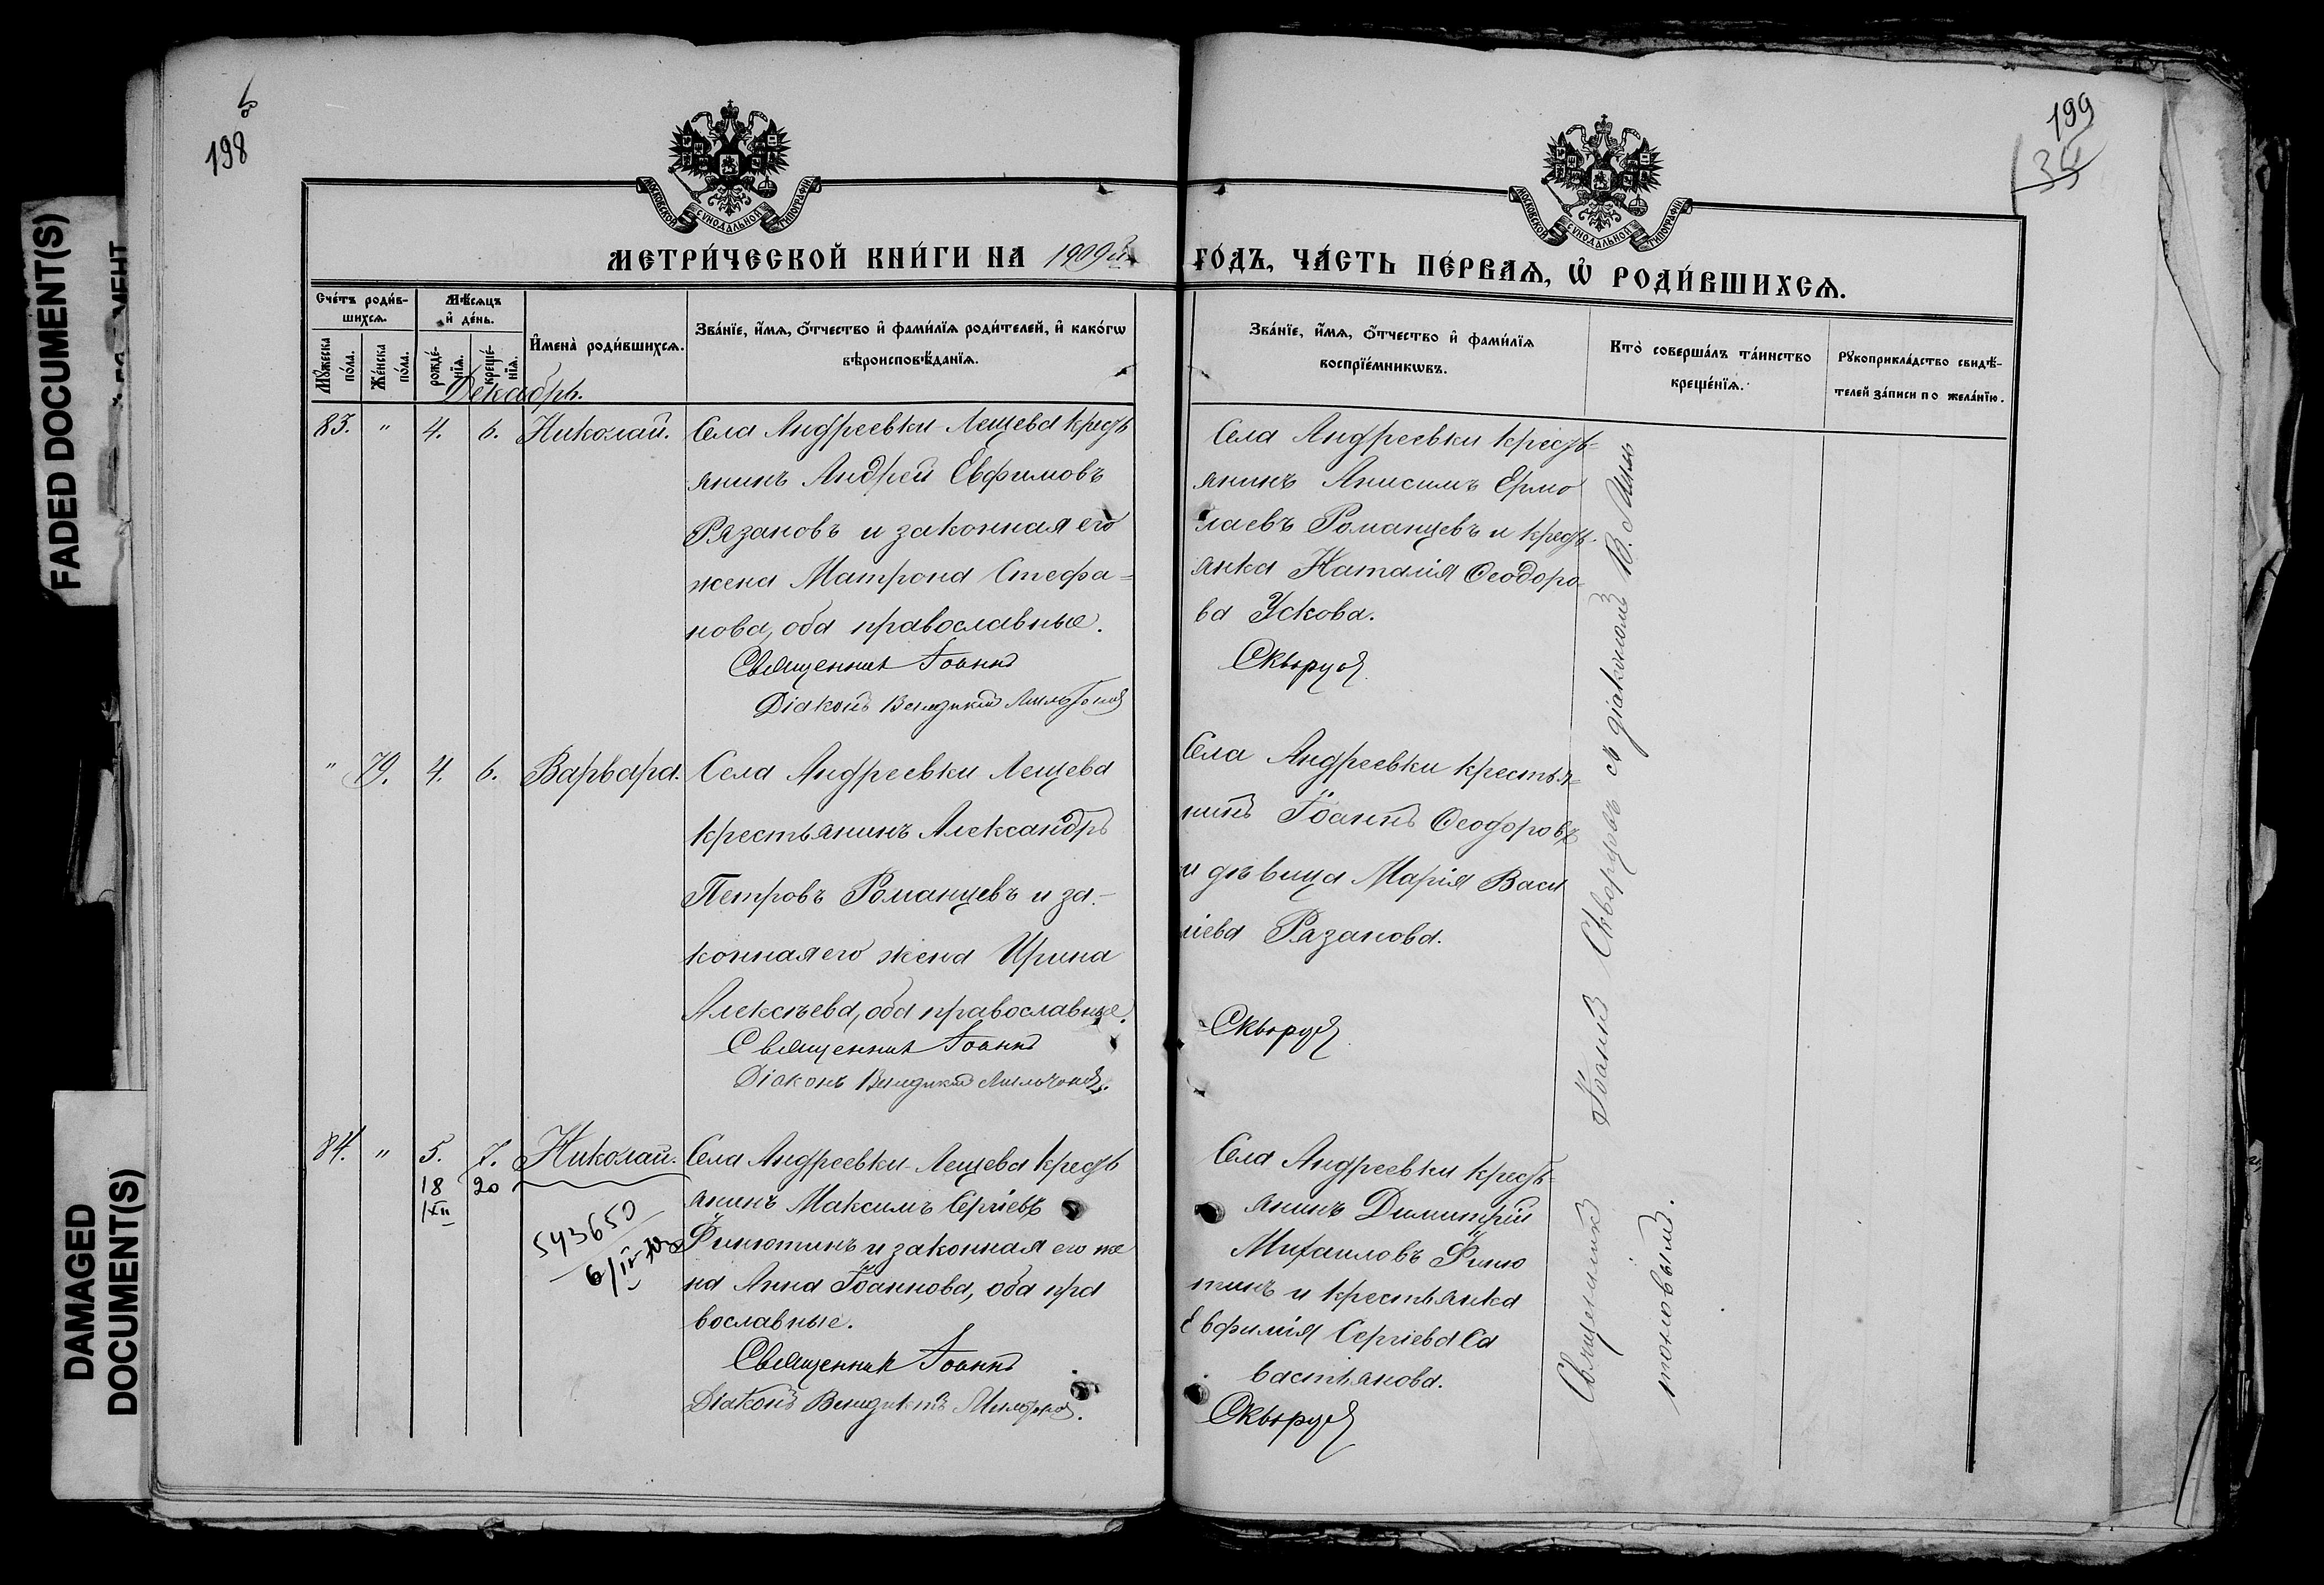 FADED DOCUMENT(S)
DAMAGED
DOCUMENT(S)
198
199
МОСКОВСКОЙ СѴНОДАЛЬНОЙ ТИПОГРАФІИ
МОСКОВСКОЙ СѴНОДАЛЬНОЙ ТИПОГРАФІИ
МЕТРИ́ЧЕСКОЙ КНИ́ГИ НА 1909й
ГО́ДЪ, ЧА́СТЬ ПЕ́РВАЯ, Ѡ҆ РОДИ́ВШИХСЯ.
Сче́тъ роди́в-
шихся.
Мѣ́сяцъ
и҆ де́нь.
Мꙋ́жеска
по́ла.
Же́нска
по́ла.
рожде́-
нїѧ.
креще́-
нїѧ.
И҆мена̀ роди́вшихся.
Зва́нїе, и҆́мѧ, ѻ҆́тчество и҆ фами́лїѧ роди́телей, и҆ како́гѡ
вѣроисповѣ́данїѧ.
Зва́нїе, и҆́мѧ, ѻ҆́тчество и҆ фами́лїѧ
воспрїе́мникѡвъ.
Кто̀ соверша́лъ та́инство
креще́нїѧ.
Рꙋкоприкла́дство свидѣ́-
телей за́писи по жела́нїю.
Декабрь.
83. " 4. 6. Николай.
Села Андреевки Лещева крестъ
янинъ Андрей Евфимовъ
Рязановъ и законная его
жена Матрона Стефа=
нова, оба православные.
Священник Іоаннъ
Діаконъ Венедиктъ
Села Андреевки кресть=
янинъ Анисимъ Ермо
лаевъ Романцевъ и кресть-
янка Наталія Ѳеодоро-
ва Ускова.
Скворцов
" 79. 4. 6. Варвара.
Села Андреевки Лещева
крестьянинъ Александръ
Петровъ Романцевъ и за-
конная его жена Ирина
Алексѣева, оба православные.
Священник Іоаннъ
Діаконъ Венедиктъ
Села Андреевки крестья=
нинъ Іоаннъ Ѳеодоровъ
и дѣвица Марія Васи
ліева Рязанова.
Скворцов
84. " 5. 7. Николай.
18 20
XII
543650
Села Андреевки-Лещева кресть
янинъ Максимъ Сергіевъ
Финютинъ и законная его же
на Анна Іоаннова, оба пра
вославные.
Священник Іоаннъ
Діаконъ Венедиктъ
Села Андреевки кресть=
янинъ Димитрій
Михаиловъ Финю
тинъ и крестьянка
Евфимія Сергіева Са
вастьянова.
Скворцов
Священникъ Іоаннъ Скворцовъ съ діакономъ В. Миль
тоновымъ.